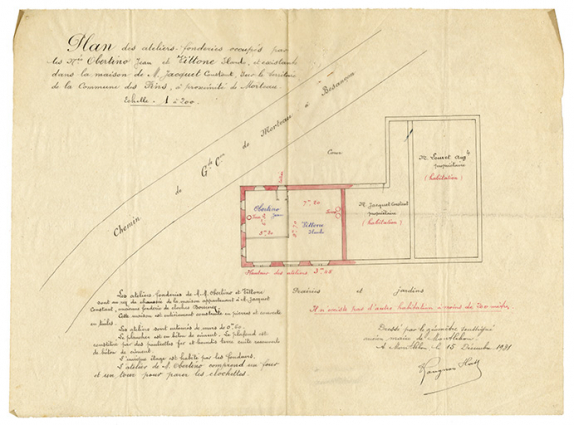 Plan des ateliers-fonderies occupés par
les Mrs Obertino Jean et Vittone Charles, et existants
dans la maison de M. Jacquet Constant, sur le territoire
de la Commune des Fins, à proximité de Morteau.
Echelle - 1 à 200.
Chemin de Gde Con de Morteau à Besançon
Cour
M. Louvet Aug
propriétaire
(habitation)
M. Jacquet Constant
propriétaire
(habitation)
Obertino
Jean
Vittone
Hauteur des ateliers 3m
Prairies et jardins
Les ateliers fonderies de M.M. Obertino et Vittone
sont au rez de chaussée de la maison appartenant à M. Jacquet
Constant, ancienne fonderie de cloches
Cette maison est entièrement construite en pierres et couverte
en tuiles
Les ateliers sont entourés de murs de 0m60.
Le plancher est en béton de ciment. Le plafond est
constitué par des poutrelles fer et hourdis terre cuite recouverts
de béton de ciment.
L'unique étage est habité par les fondeurs.
L'atelier de M. Obertino comprend un four
et un tour pour parer les clochettes.
Il n'existe pas d'autre habitation à moins de 200 mètres
Dressé par le géomètre soussigné
maire de Montlebon
A Montlebon le 15 Décembre 1931